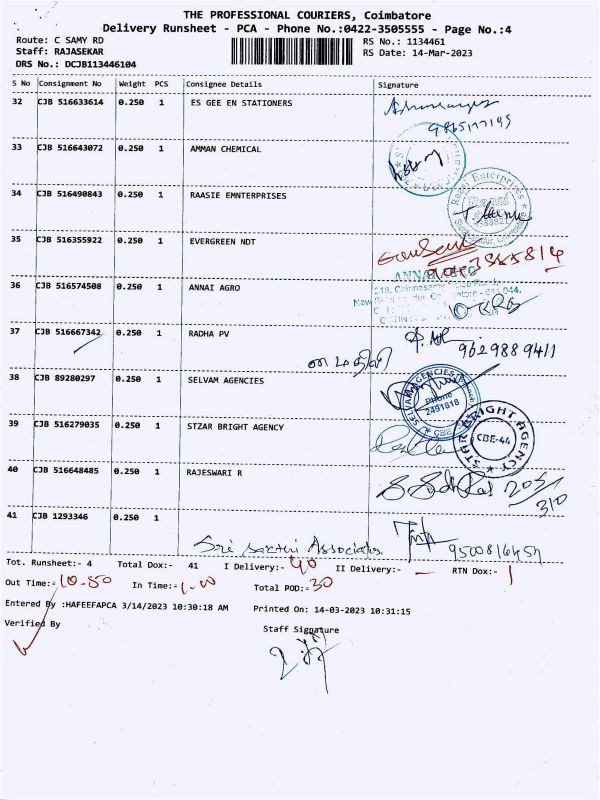 THE PROFESSIONAL COURIERS, Coimbatore
Delivery Runsheet - PCA - Phone No.:0422-3505555 - Page No.:4
Route: C SAMY RD
RS No.: 1134461
Staff: RAJASEKAR
RS Date: 14-Mar-2023
DRS No.: DCJB113446104
S No Consignment No Weight PCS Consignee Details Signature
32 CJB 516633614 0.250 1 ES GEE EN STATIONERS
33 CJB 516643072 0.250 1 AMMAN CHEMICAL
34 CJB 516490843 0.250 1 RAASIE EMNTERPRISES
35 CJB 516355922 0.250 1 EVERGREEN NDT
36 CJB 516574508 0.250 1 ANNAI AGRO
37 CJB 516667342 0.250 1 RADHA PV
9629889411
38 CJB 89280297 0.250 1 SELVAM AGENCIES
SELVAM AGENCIES
Phone
2491818
CBE
39 CJB 516279035 0.250 1 STZAR BRIGHT AGENCY
STAR BRIGHT AGENCY
CBE-44
40 CJB 516648485 0.250 1 RAJESWARI R
41 CJB 1293346 0.250 1
Sri Sakthi Associates
Tot. Runsheet:- 4 Total Dox:- 41 I Delivery:- 40 II Delivery:- - RTN Dox:- 1
Out Time:- 10.50 In Time:- 1.00 Total POD:- 30
Entered By :HAFEEFAPCA 3/14/2023 10:30:18 AM Printed On: 14-03-2023 10:31:15
Verified By Staff Signature